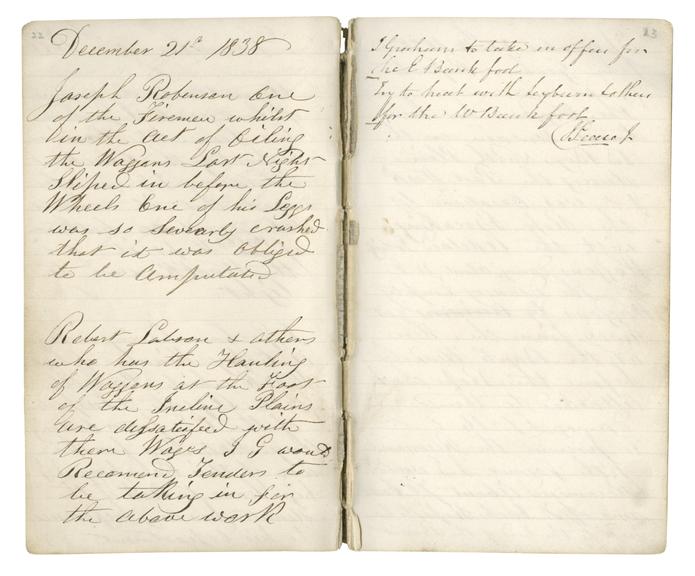 22
December 21st 1838
Joseph Robenson One
of the Firemen whilst
in the act of Oiling
the Waggans Last Night
Sliped in before the
Wheels One of his Leggs
was so sevearly crashed
that it was Obliged
to be Amputated
Robert Labson & others
who has the Hauling
of Waggans at the Foot
of the Incline Plains
are dissatisfied with
there Wages J G woud
Recomend Tenders to
be taking in for
the above work
23
J Graham to take in offers for
the E Bank foot
Try to treat with Leyburn & others
for the W Bank foot